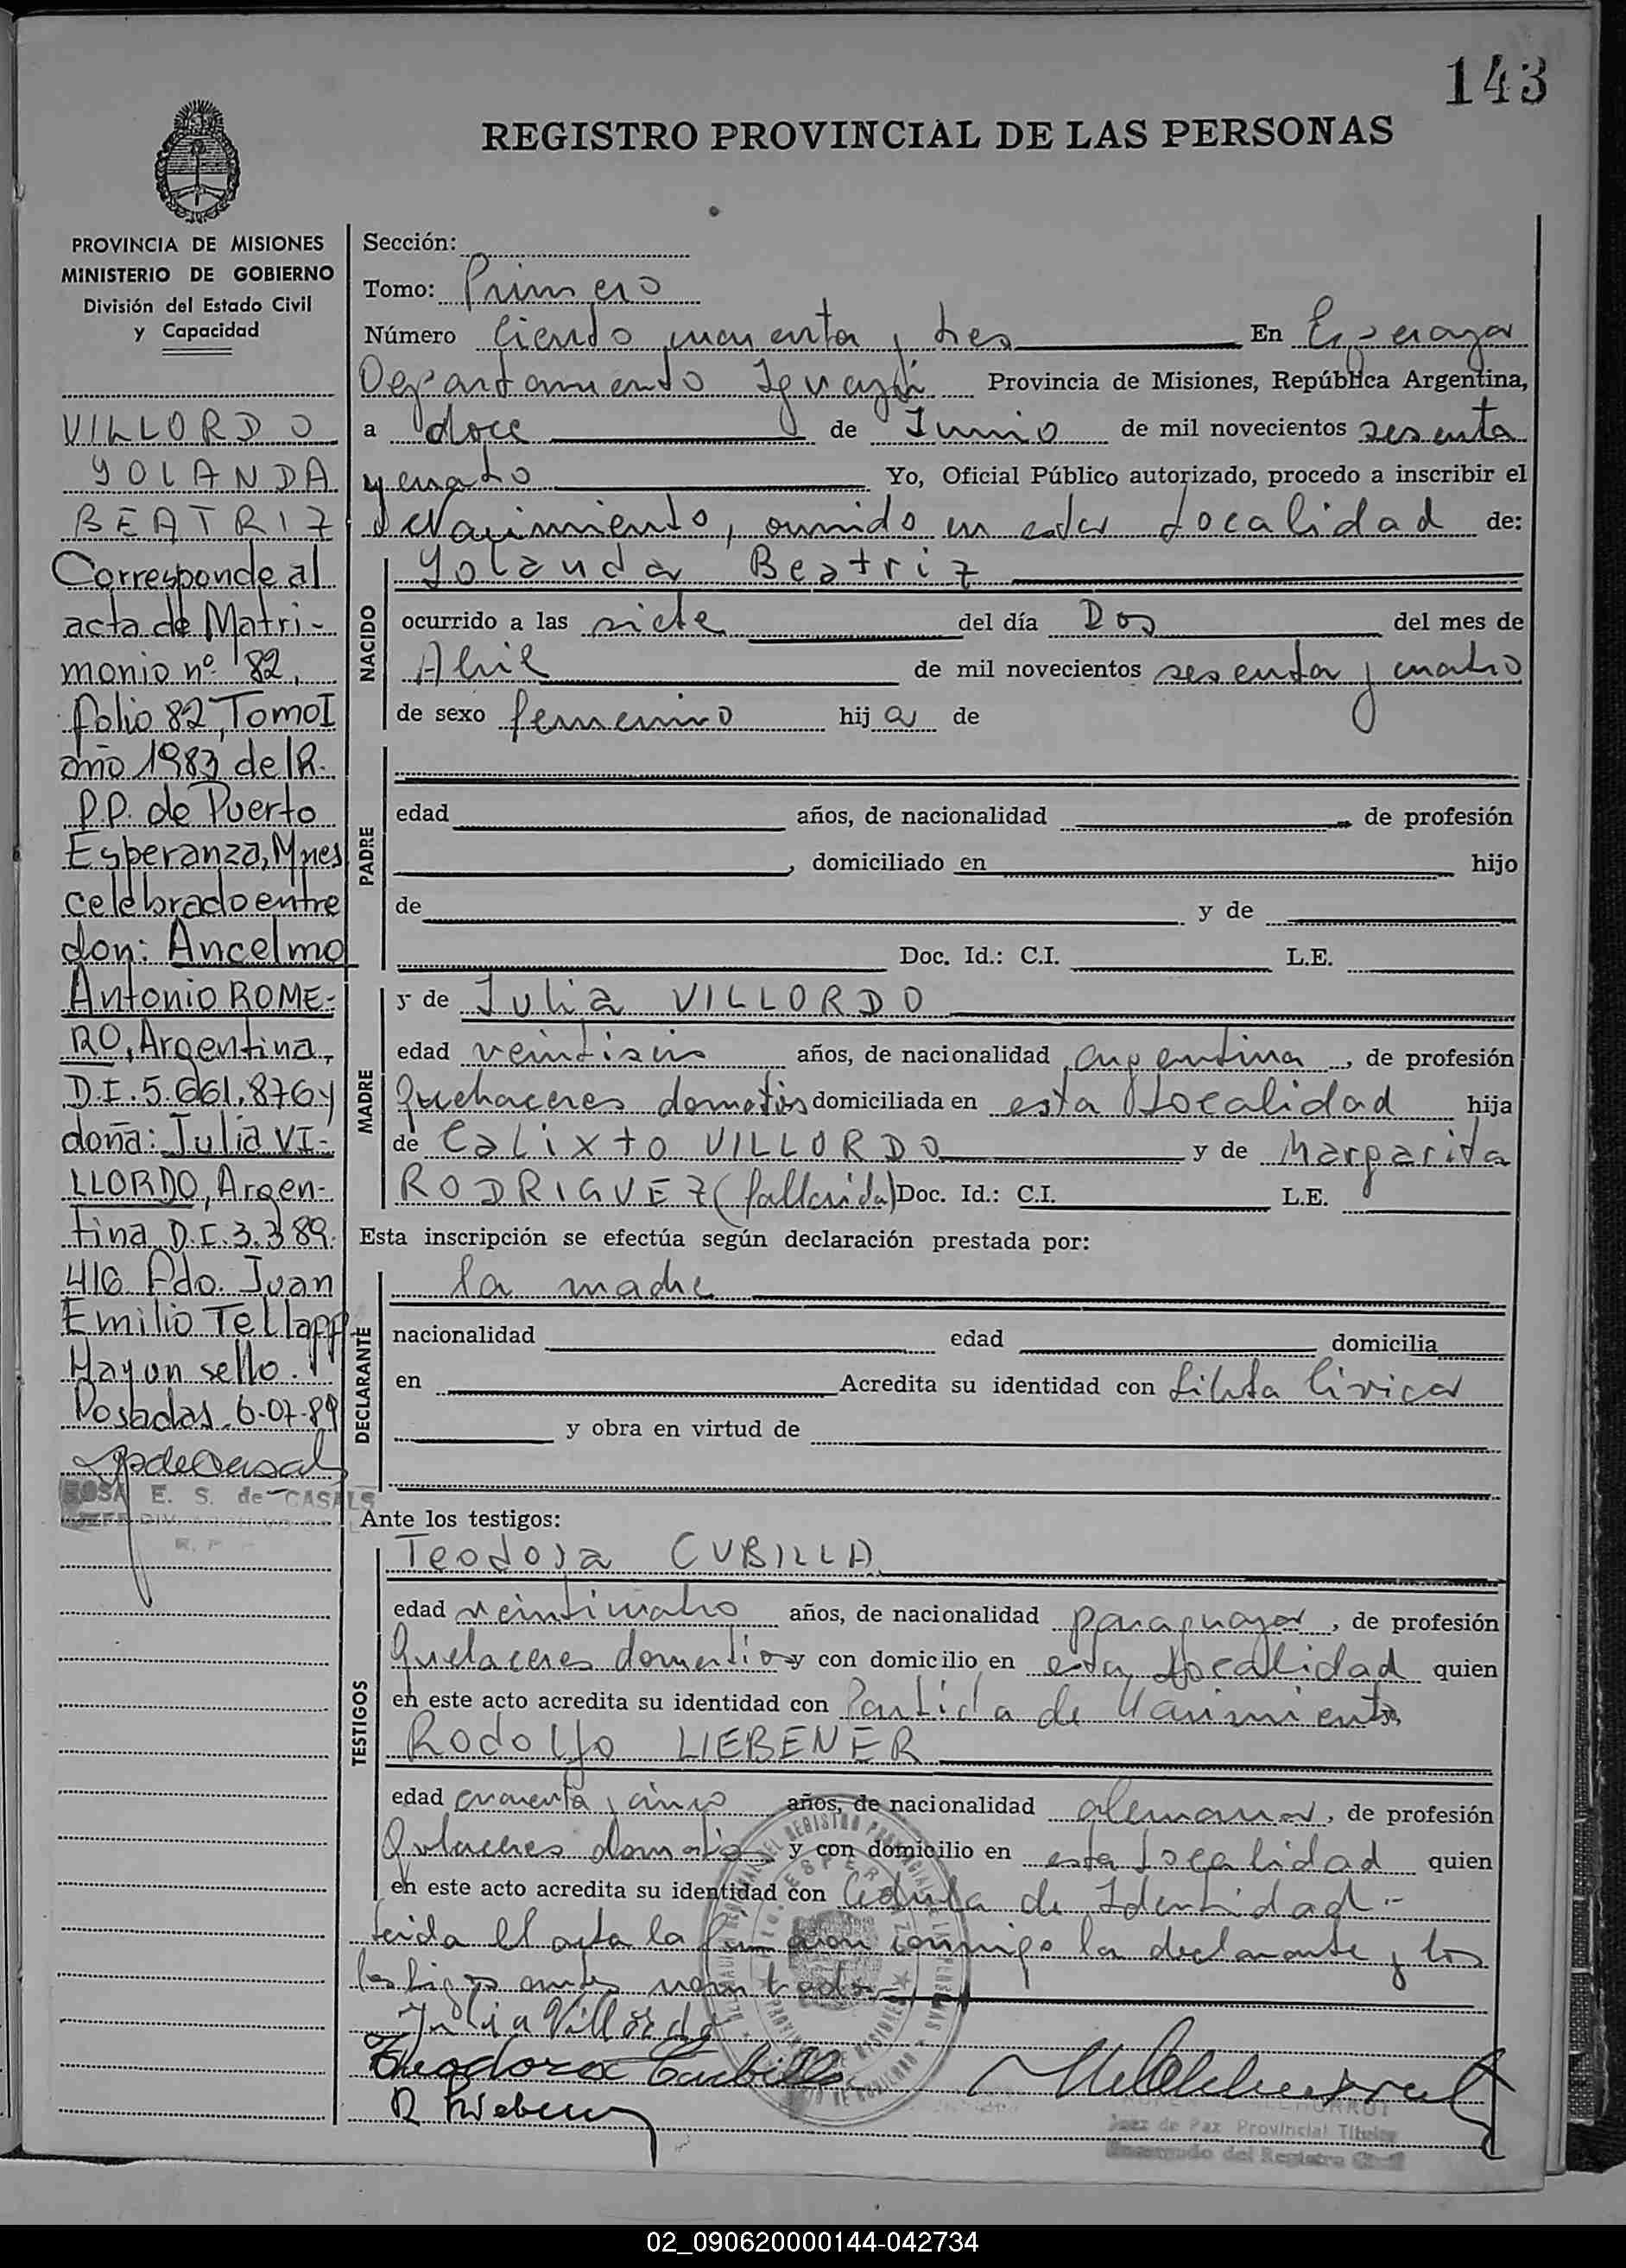 143
REGISTRO PROVINCIAL DE LAS PERSONAS
PROVINCIA DE MISIONES
MINISTERIO DE GOBIERNO
División del Estado Civil
y Capacidad
VILLORDO
YOLANDA
BEATRIZ
Corresponde al
acta de Matri-
monio nº 82,
folio 82, Tomo I
año 1983 del R.
P.P. de Puerto
Esperanza, Mnes
celebrado entre
don: Ancelmo
Antonio ROME-
RO, Argentina,
D.I. 5.661.876 y
doña: Julia VI-
LLORDO, Argen-
tina D.I. 3.389.
416 Fdo. Juan
Emilio Tellapp
Hay un sello.
Posadas, 6-07-89
ROSA E. S. de CASALS
Sección:
Tomo: Primero
Número Ciento cuarenta y tres En Esperanza
Departamento Iguazú Provincia de Misiones, República Argentina,
a doce de Junio de mil novecientos sesenta
y cuatro Yo, Oficial Público autorizado, procedo a inscribir el
Nacimiento, ocurrido en esta Localidad de:
NACIDO
Yolanda Beatriz
ocurrido a las siete del día Dos del mes de
Abril de mil novecientos sesenta y cuatro
de sexo femenino hija de
PADRE
edad años, de nacionalidad de profesión
, domiciliado en hijo
de y de
Doc. Id.: C.I. L.E.
MADRE
y de Julia VILLORDO
edad veintiseis años, de nacionalidad argentina, de profesión
Quehaceres domesticos domiciliada en esta Localidad hija
de Calixto VILLORDO y de Margarita
RODRIGUEZ (fallecida) Doc. Id.: C.I. L.E.
Esta inscripción se efectúa según declaración prestada por:
DECLARANTE
la madre
nacionalidad edad domicilia
en Acredita su identidad con Libreta Civica
y obra en virtud de
Ante los testigos:
TESTIGOS
Teodosa CUBILLA
edad veinticuatro años, de nacionalidad paraguaya, de profesión
Quehaceres domesticos y con domicilio en esta Localidad quien
en este acto acredita su identidad con Partida de Nacimiento
Rodolfo LIEBENER
edad cuarenta y cinco años, de nacionalidad alemana, de profesión
Quehaceres domesticos y con domicilio en esta Localidad quien
en este acto acredita su identidad con Cedula de Identidad.-
Leida el acta la firman conmigo la declarante y los
testigos antes nombrados
Julia Villordo
Teodora Cubilla
R Liebener
Juez de Paz Provincial Titular
Encargado del Registro Civil
02_090620000144-042734